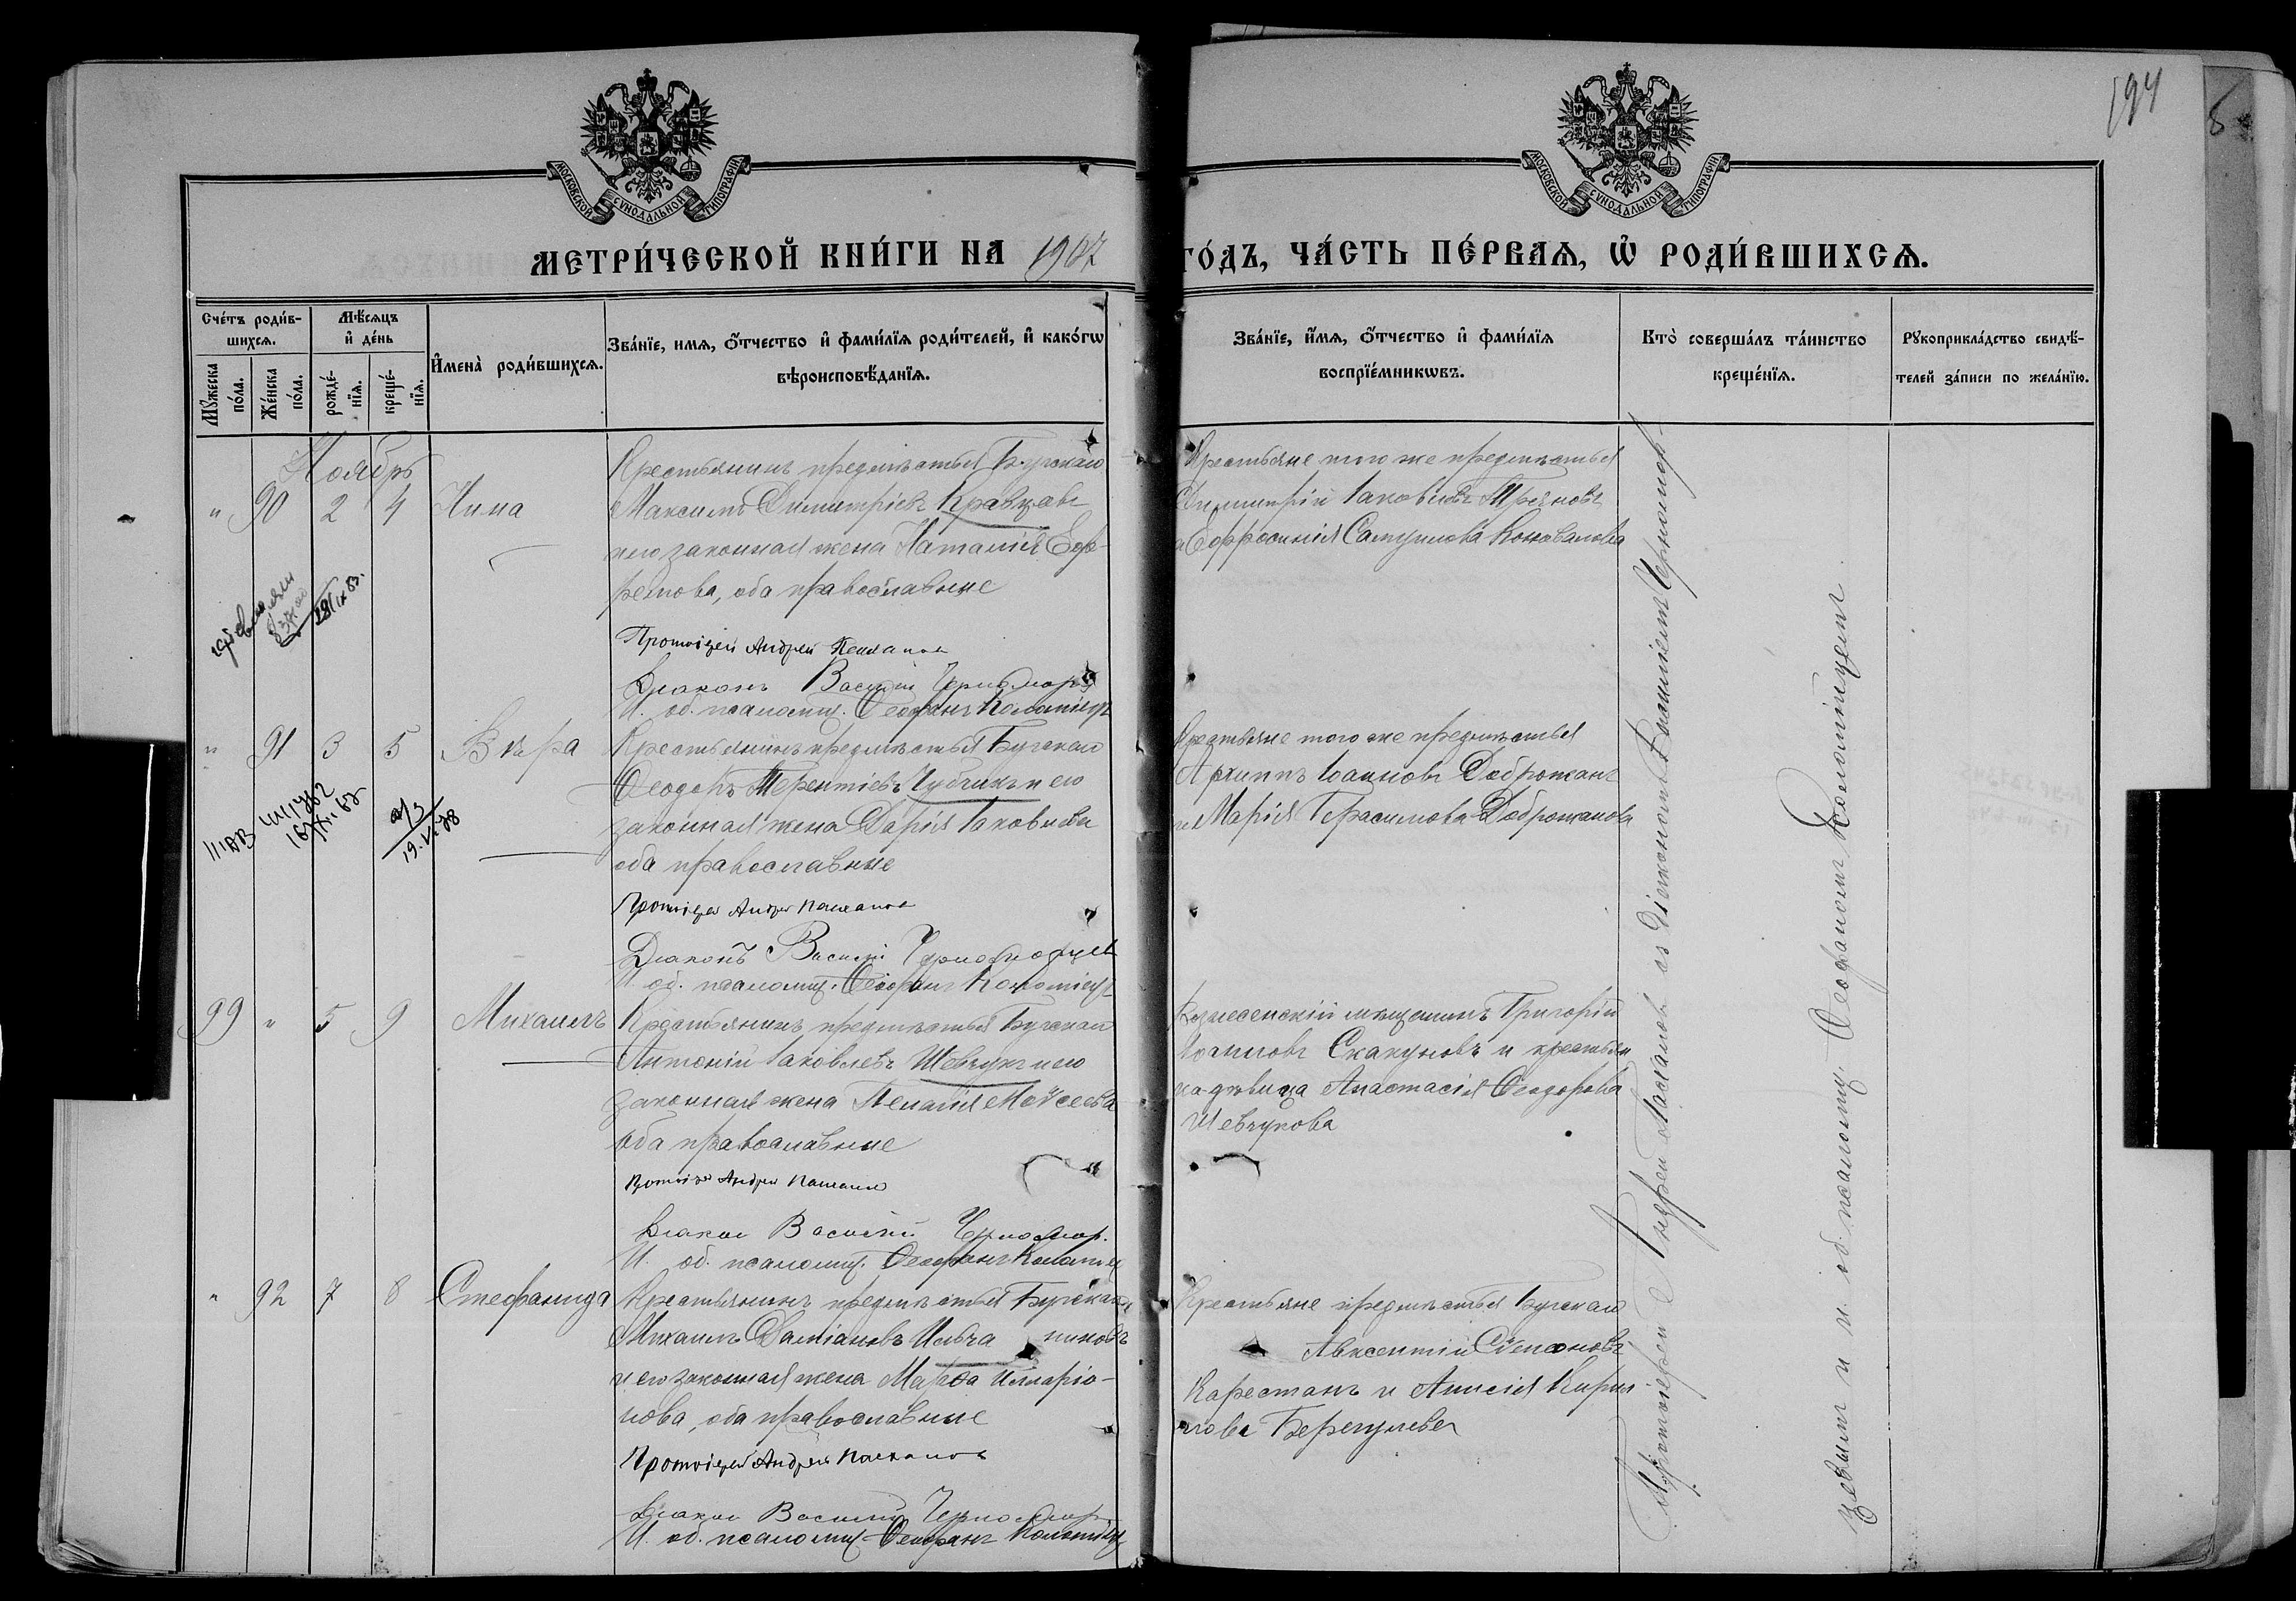 194
МОСКОВСКОЙ СѴНОДАЛЬНОЙ ТИПОГРАФІИ
МОСКОВСКОЙ СѴНОДАЛЬНОЙ ТИПОГРАФІИ
МЕТРИ́ЧЕСКОЙ КНИ́ГИ НА 1907 ГО́ДЪ, ЧА́СТЬ ПЕ́РВАѦ, Ѽ РОДИ́ВШИХСѦ.
Сче́тъ роди́в-
шихсѧ.
Мꙋ́жеска по́ла.
Же́нска по́ла.
Мѣ́сѧцъ
и҆ де́нь
рожде́-
нїѧ.
креще́-
нїѧ.
И҆мена̀ роди́вшихсѧ.
Зва́нїе, имѧ, ѻ҆́тчество и҆ фами́лїѧ роди́телей, и҆ како́гѡ
вѣроисповѣ́данїѧ.
Зва́нїе, и҆́мѧ, ѻ҆́тчество и҆ фами́лїѧ
воспрїе́мникѡвъ.
Кто̀ соверша́лъ та́инство
креще́нїѧ.
Рꙋкоприкла́дство свидѣ́-
телей за́писи по жела́нїю.
Ноябрь
" 90 2 4 Нина
Крестьянинъ предмѣстья Бугскаго
Максимъ Димитріевъ Кравцовъ
и его законная жена Наталія Еф-
ремова, оба православные
Протоіерей Андрей
Діаконъ Василій Черноморц
И. об. псаломщ. Ѳеофанъ Коломіецъ
Крестьяне того же предмѣстья
Димитрій Іаковлевъ
и Евфросинія Самуилова Коновалова
" 91 3 5 Вѣра
Крестьянинъ предмѣстья Бугскаго
Ѳеодоръ Терентіевъ Чубчикъ и его
законная жена Дарія Іаковлева
оба православные
19.VI.38
Протоіерей Андрей
Діаконъ Василій Черноморцев
И. об. псаломщ. Ѳеофанъ Коломіецъ
Крестьяне того же предмѣстья
Архиппъ Іоанновъ Доброжанъ
и Марія Герасимова Доброжанова
99 " 5 9 Михаилъ
Крестьянинъ предмѣстья Бугскаго
Антоній Іаковлевъ Шевчукъ и его
законная жена Пелагія Мойсеева
оба православные
Протоіерей Андрей
Діаконъ Василій Черномор.
И. об. псаломщ. Ѳеофанъ Коломіец
Вознесенскій мѣщанинъ Григорій
Іоанновъ Скакуновъ и крестьян
ка-дѣвица Анастасія Ѳеодорова
Шевчукова
" 92 7 8 Стефанида
Крестьянинъ предмѣстья Бугскаго
Михаилъ Даміановъ
и его законная жена Марѳа Иларіо-
нова, оба православные
Протоіерей Андрей
Діаконъ Василій Черномор
И. об. псаломщ. Ѳеофанъ Коломіец
Крестьяне предмѣстья Бугскаго
Авксентій Степановъ
Карестанъ и Анисія Кирил
лова
Протоіерей Андрей съ діакономъ Василіемъ Черномор-
цевымъ и и. об. псаломщ. Ѳеофаномъ Коломійцемъ.